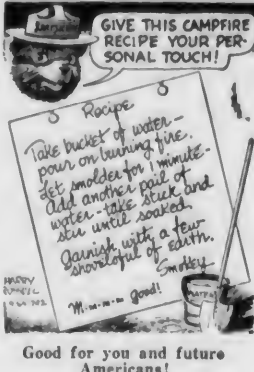 GIVE THIS CAMPFIRE
RECIPE YOUR PER-
SONAL TOUCH!
Recipe
Take bucket of water -
pour on burning fire.
Let smolder for 1 minute -
add another pail of
water - take stick and
stir until soaked.
Garnish with a few
shovelsful of earth.
Smokey
M-m-m-m good!
WATER
Good for you and future
Americans!